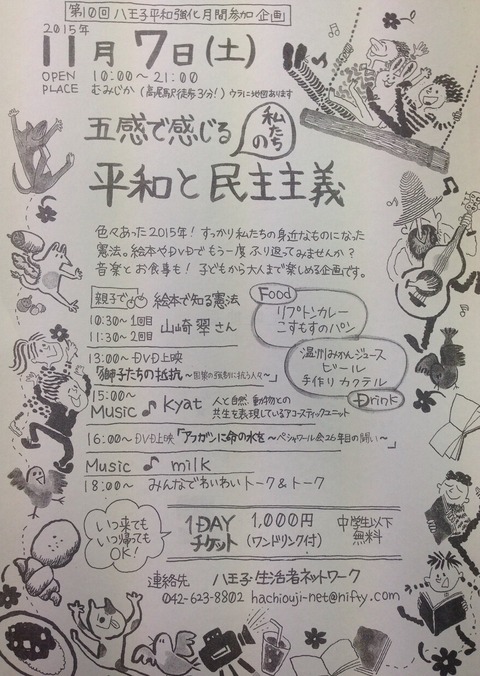 第10回 八王子平和強化月間参加企画
2015年
11月7日(土)
OPEN 10:00〜21:00
PLACE むみじか (高尾駅徒歩3分!) ウラに地図あります
五感で感じる私たちの
平和と民主主義
色々あった2015年! すっかり私たちの身近なものになった
憲法。絵本やDVDでもう一度ふり返ってみませんか?
音楽とお食事も! 子どもから大人まで楽しめる企画です。
親子で 絵本で知る憲法
10:30〜1回目
11:30〜2回目
山崎翠さん
Food
リプトンカレー
こすもすのパン
温州みかんジュース
ビール
手作りカクテル
Drink
13:00〜DVD上映
「獅子たちの抵抗
15:00〜
Music ♪ Kyat 人と自然、動物との
共生を表現しているアコースティックユニット
16:00〜DVD上映「アフガンに命の水を〜ペシャワール会26年目の闘い〜」
Music ♪ milk
18:00〜 みんなでわいわいトーク&トーク
いつ来ても
いつ帰っても
OK!
1DAY
チケット
1,000円
(ワンドリンク付)
中学生以下
無料
連絡先 八王子・生活者ネットワーク
042-623-8802 hachiouji-net@nifty.com